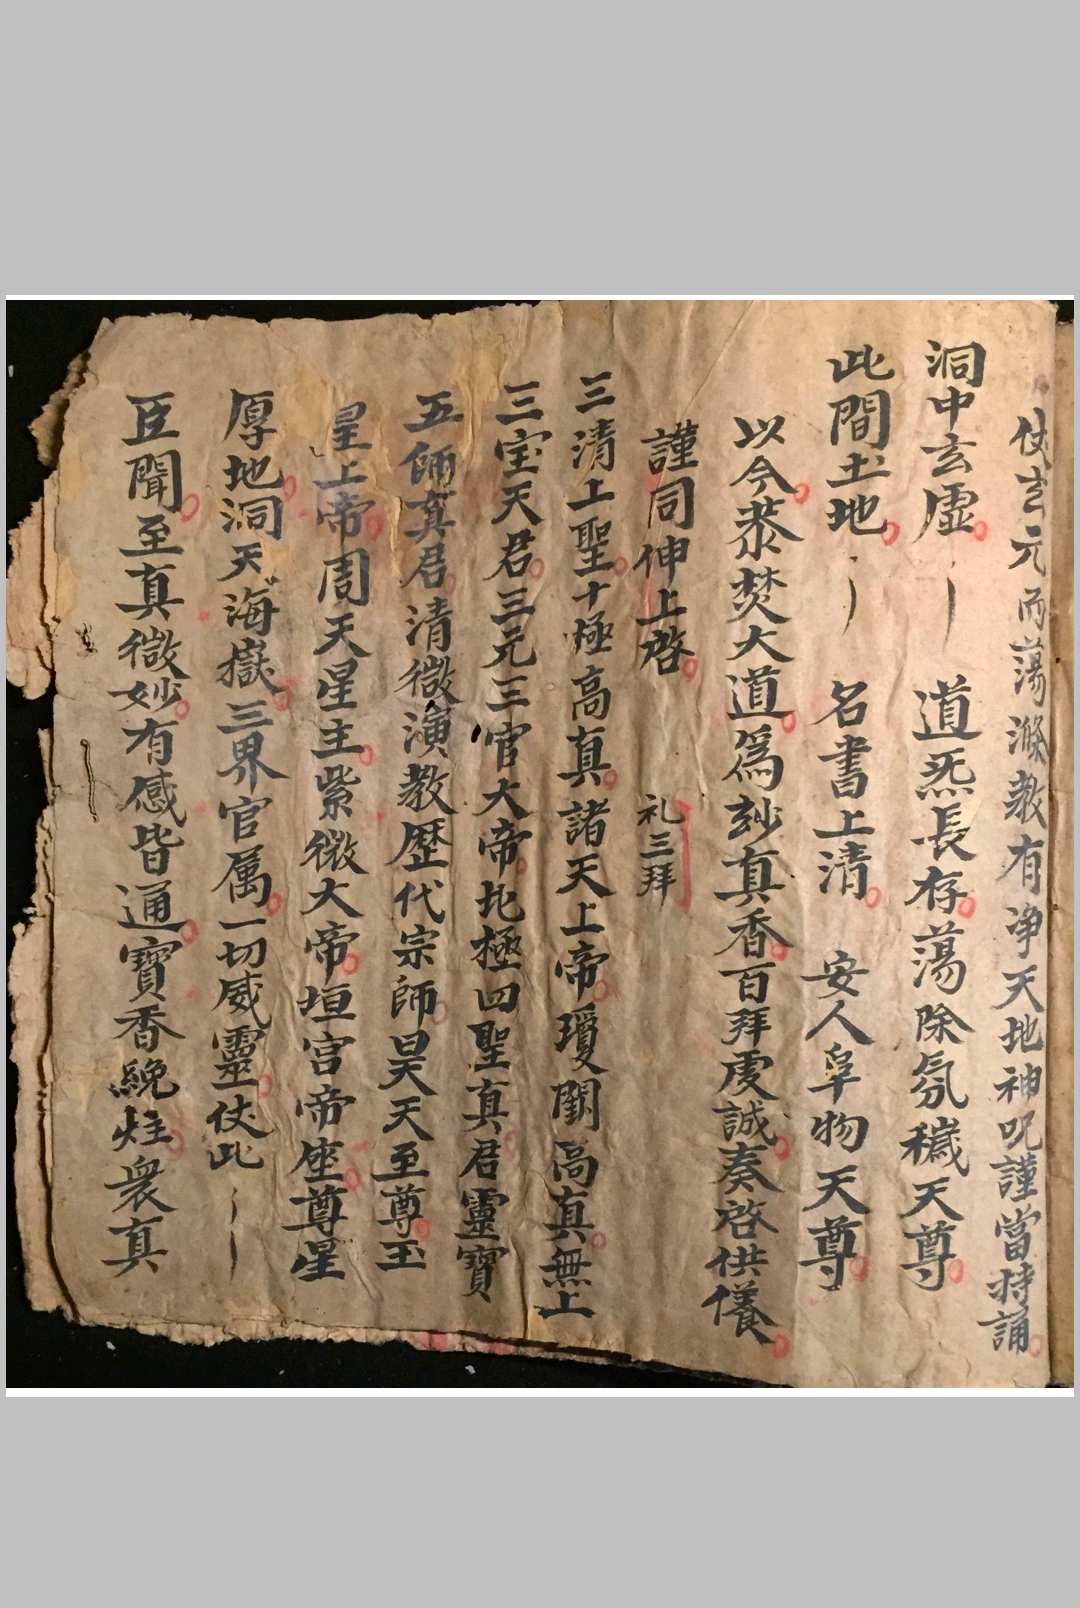 仗玄元而蕩滌教有净天地神呪謹當持誦
洞中玄虛 道炁長存蕩除氛穢天尊
此間土地 名書上清 安人阜物天尊
以今恭焚大道為玅真香百拜虔誠奏啓供養
謹同伸上啓 礼三拜
三清上聖十極高真諸天上帝瓊闕高真無上
三宝天君三元三官大帝北極四聖真君靈寶
五師真君清微演教歴代宗師昊天至尊玉
皇上帝周天星主紫微大帝垣宫帝座尊星
厚地洞天海嶽三界官属一切威靈仗此
臣聞至真微妙有感皆通寶香纔炷衆真